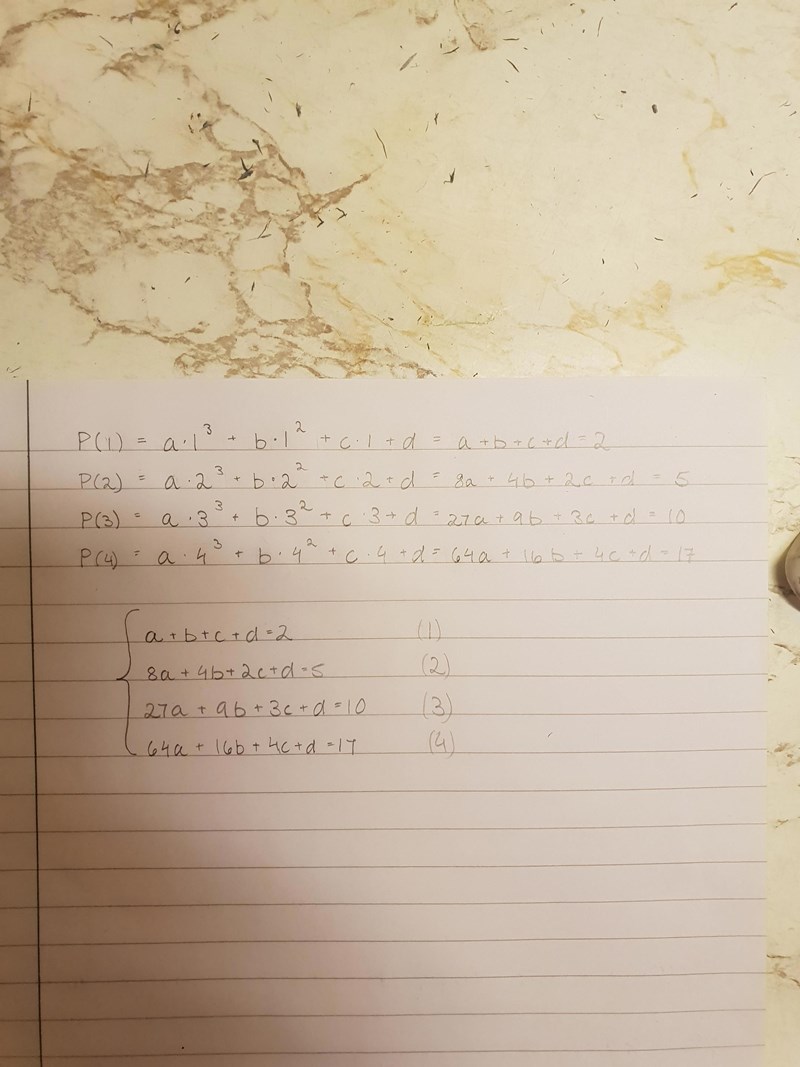 P(1) = a·1³ + b·1² + c·1 + d = a+b+c+d=2
P(2) = a·2³ + b·2² + c·2+d = 8a + 4b + 2c + d = 5
P(3) = a·3³ + b·3² + c·3+d = 27a + 9b + 3c + d = 10
P(4) = a·4³ + b·4² + c·4 + d = 64a + 16b + 4c + d = 17
a+b+c+d=2 (1)
8a + 4b + 2c + d = 5 (2)
27a + 9b + 3c + d = 10 (3)
64a + 16b + 4c + d = 17 (4)